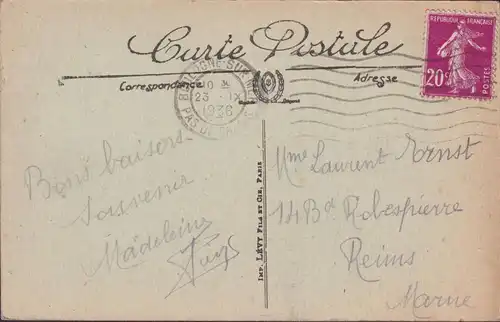 Carte Postale
Correspondance
Adresse
REPUBLIQUE FRANÇAISE
POSTES
20c
BOULOGNE-SUR-MER
10
23 IX
1936
PAS DE CALAIS
Bons baisers
Souvenir
Madeleine
Mme Laurent Ernst
14 Bd Robespierre
Reims
Marne
IMP. LÉVY FILS ET CIE, PARIS